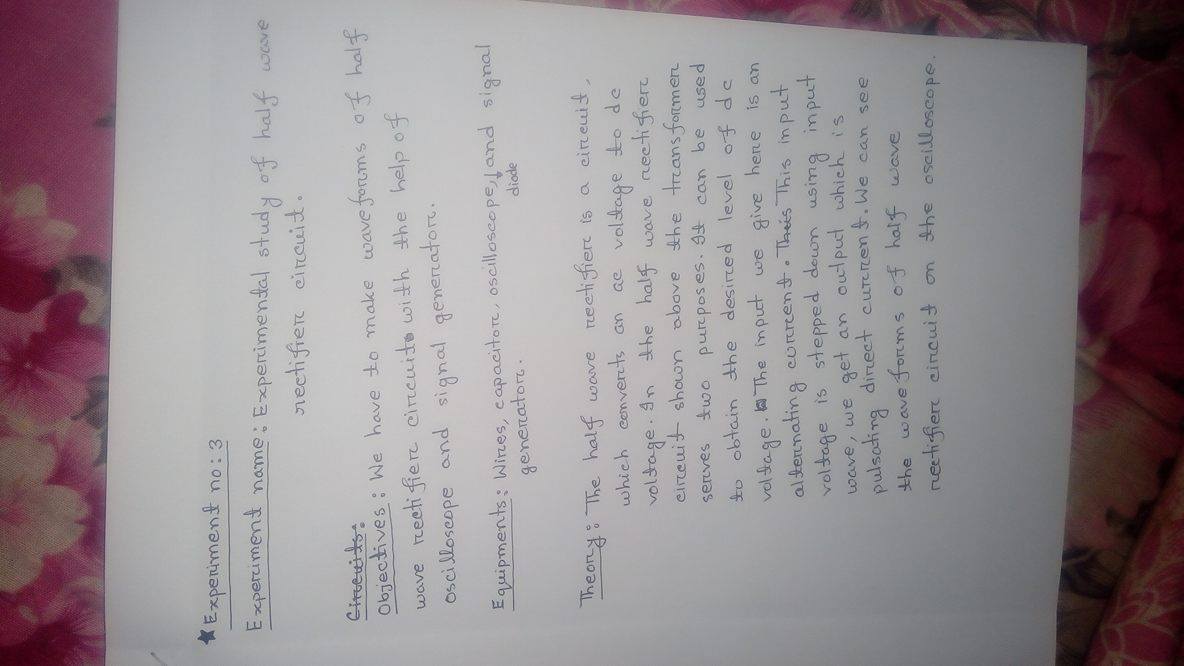 ★ Experiment no: 3
Experiment name: Experimental study of half wave
rectifier circuit.
Circuits:
Objectives: We have to make waveforms of half
wave rectifier circuit with the help of
oscilloscope and signal generator.
Equipments: Wires, capacitor, oscilloscope,↓and signal
diode
generator.
Theory: The half wave rectifier is a circuit,
which converts an ac voltage to dc
voltage. In the half wave rectifier
circuit shown above the transformer
serves two purposes. It can be used
to obtain the desired level of dc
voltage. The input we give here is an
alternating current. This This input
voltage is stepped down using input
wave, we get an output which is
pulsating direct current. We can see
the waveforms of half wave
rectifier circuit on the oscilloscope.